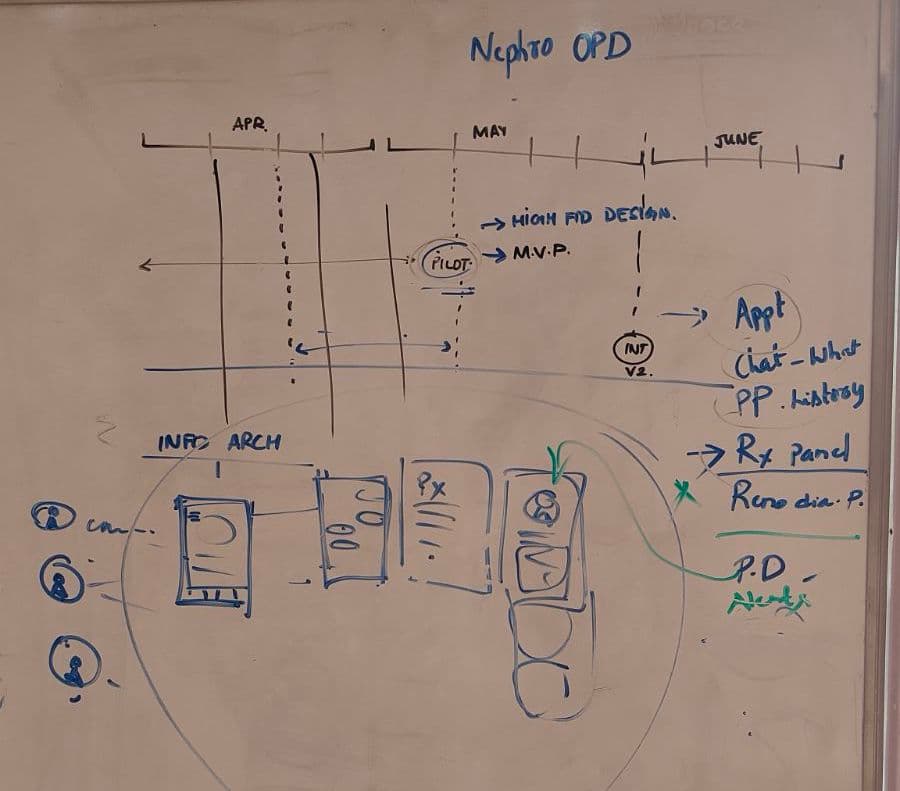 Nephro OPD
APR.
MAY
JUNE
→ HIGH FID DESIGN.
PILOT → M.V.P.
INT
V2.
→ Appt
Chat - What
PP. history
→ Rx Panel
Reno dia. P.
P.D
Alerts
INFO ARCH
Rx